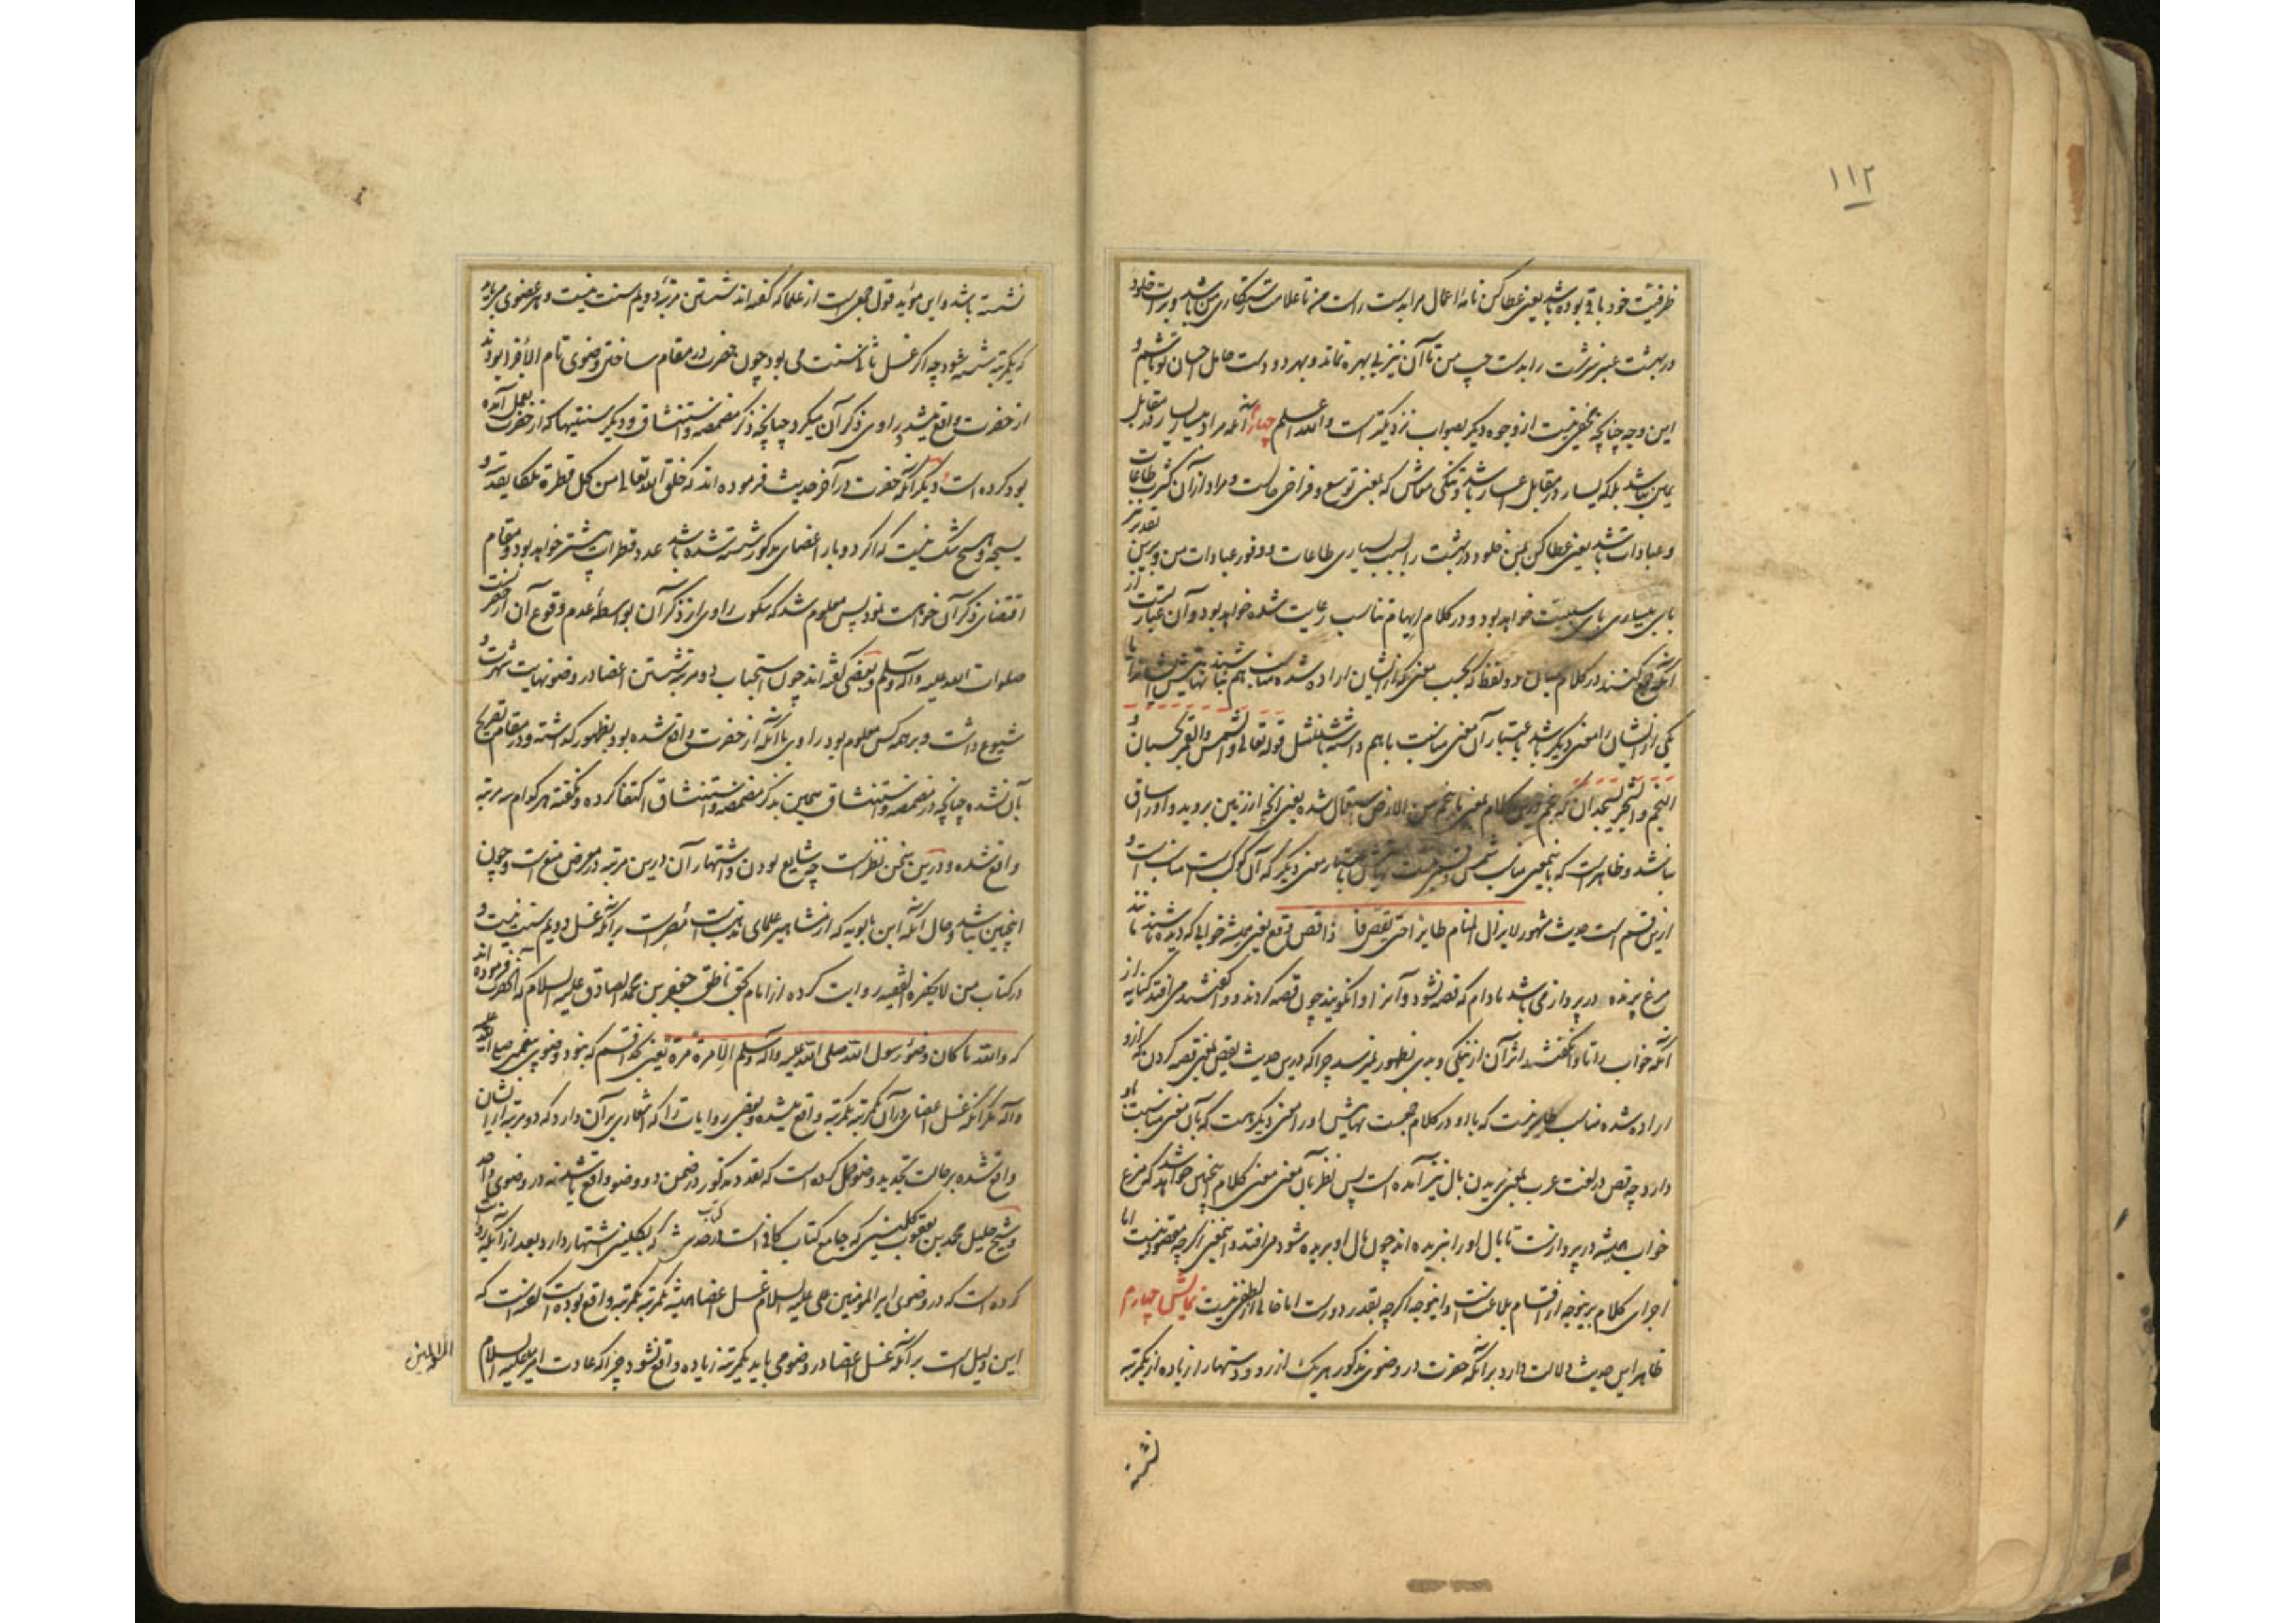 ۱۱۲
ظرفیت خود باقی بوده باشد یعنی عطا کن نامهٔ اعمال مرا بدست راست من تا علامت رستگاری من باشد و برات خلود
در بهشت عنبر سرشت را بدست چپ من تا آن نیز بی بهره نماند و بهر دو دست حامل احسان تو باشم و
این وجه چنانچه مخفی نیست از وجوه دیگر بصواب نزدیکتر است والله اعلم چهارم آنکه مراد بیسار یسار در مقابل
یمین نباشد بلکه یسار در مقابل اعسار باشد و تنگی معاش که بمعنی توسع و فراخی حالست و مراد از آن کثرت طاعات
و عبادات باشد یعنی عطا کن بمن خلود در بهشت را بسبب بسیاری طاعات و وفور عبادات من و برین تقدیر
بای بیساری بای سببیت خواهد بود و در کلام ایهام تناسب رعایت شده خواهد بود و آن عبارتست از
آنکه جمع کنند در کلام میان دو لفظ که بحسب معنی که از ایشان اراده شده مناسب هم نباشند نهایتش اینست که با
یکی از ایشان را معنی دیگر باشد که باعتبار آن معنی مناسبت باهم داشته باشند مثل قوله تعالی والشمس والقمر بحسبان و
النجم والشجر یسجدان که نجم درین کلام بمعنی ما نجم من الارض استعمال شده یعنی آنچه از زمین بروید و او را ساقی
نباشد و ظاهر است که باین معنی مناسب شمس و قمر نیست نهایتش باعتبار معنی دیگر که آن کوکب است مناسب است و
ازین قسم است حدیث مشهور لا یزال المنام طایرا حتی یقص فاذا قص وقع یعنی همیشه خوابی که دیده باشند مانند
مرغ پرنده در پرواز می باشد مادام که قصه نشود و آنرا وانگویند چون قصه کردند و واگفتند می افتد کنایه از
آنکه خواب را تا وانگفتند اثر آن از نیکی و بدی بظهور نمیرسد چرا که درین حدیث یقص بمعنی قصه کردن که ازو
اراده شده مناسب طایر نیست که با او در کلام جمعست نهایتش او را معنی دیگر هست که بآن معنی مناسبت باو
دارد چه قص در لغت عرب بمعنی بریدن بال نیز آمده است پس نظر بآن معنی معنی کلام اینچنین خواهد شد که مرغ
خواب همیشه در پرواز است تا بال او را نبریده اند چون بال او بریده شود می افتد و این معنی اگرچه مقصود نیست اما
اجرای کلام برینوجه از اقسام بلاغتست و اینوجه اگرچه بقدر دورست اما خالی از لطفی نیست نمایش چهارم
ظاهر این حدیث دلالت دارد بر آنکه حضرت در وضوی مذکور هر یک از رو و دستها را زیاده از یکمرتبه
نشسته
نشسته باشد و این مؤید قول جمعی است از علما که گفته اند شستن مرتبهٔ دویم سنت نیست و هر عضوی می باید
که یکمرتبه شسته شود چه اگر غسل ثانی سنت می بود چون حضرت در مقام ساختن وضوی تام الاجزا بودند
از حضرت واقع میشد و راوی ذکر آن میکرد چنانچه ذکر مضمضه و استنشاق و دیگر سنتیها که از حضرت بعمل آمده
بود کرده است و دیگر آنکه حضرت در آخر حدیث فرموده اند که خلق الله تعالی من کل قطرة ملکا یقدسه و
یسبحه و هیچ شک نیست که اگر دو بار اعضای مذکور شسته شده باشد عدد قطرات بیشتر خواهد بود و مقام
اقتضای ذکر آن خواست نمود پس معلوم شد که سکوت راوی از ذکر آن بواسطهٔ عدم وقوع آن از حضرت
صلوات الله علیه وآله وسلم و بعضی گفته اند چون استحباب دو مرتبه شستن اعضا در وضو نهایت شهرت و
شیوع داشت و بر همه کس معلوم بود راوی با آنکه از حضرت واقع شده بود بظهور گذاشته و در مقام تصریح
بآن نشده چنانچه در مضمضه و استنشاق همین بذکر مضمضه و استنشاق اکتفا کرده و نگفته هر کدام سه مرتبه
واقع شده و درین سخن نظر است چه شایع بودن و اشتهار آن درین مرتبه در معرض منع است و چون
اینچنین باشد و حال آنکه ابن بابویه که از مشاهیر علمای مذهبست مصر است بر آنکه غسل دویم سنت نیست و
در کتاب من لا یحضره الفقیه روایت کرده از امام بحق ناطق جعفر بن محمد الصادق علیه السلام که آنحضرت فرموده اند
که والله ما کان وضوء رسول الله صلی الله علیه وآله وسلم الا مرة مرة یعنی بخدا قسم که نبود وضوی پیغمبر صلی الله علیه
وآله مگر آنکه غسل اعضای در آن یکمرتبه یکمرتبه واقع میشده و بعضی روایات را که اشعاری بر آن دارد که دو مرتبه از ایشان
واقع شده بر حالت تجدید وضو حمل کرده است که تعدد مذکور در ضمن دو وضو واقع باشد نه در وضوی واحد
و شیخ جلیل محمد بن یعقوب کلینی که جامع کتاب کافی است در حدیث که بکلینی اشتهار دارد بعد از آنکه روایت
کرده است که در وضوی امیر المومنین علی علیه السلام غسل اعضا همیشه یکمرتبه یکمرتبه واقع بوده است گفته است که
این دلیل است بر آنکه غسل اعضا در وضو می باید یکمرتبه زیاده واقع نشود چرا که عادت امیر علیه السلام